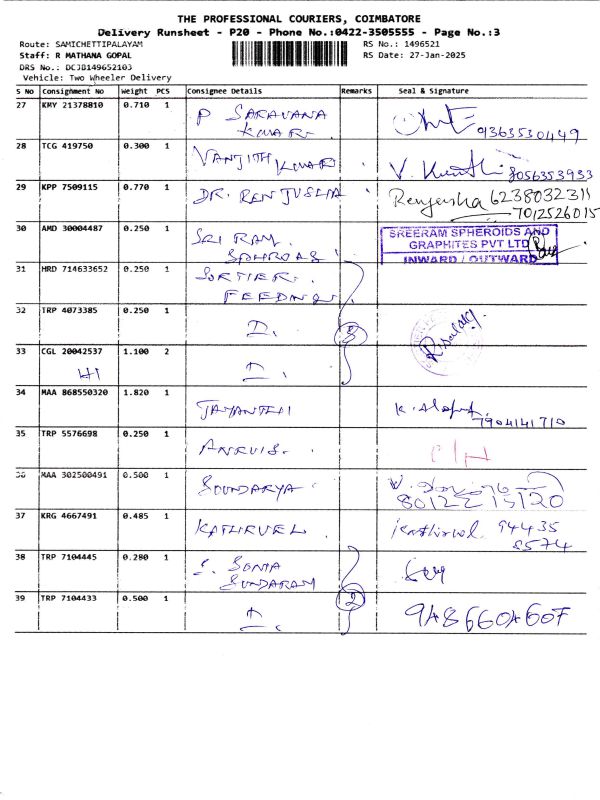 THE PROFESSIONAL COURIERS, COIMBATORE
Delivery Runsheet - P20 - Phone No.:0422-3505555 - Page No.:3
Route: SAMICHETTIPALAYAM RS No.: 1496521
Staff: R MATHANA GOPAL RS Date: 27-Jan-2025
DRS No.: DCJB149652103
Vehicle: Two Wheeler Delivery
S No Consignment No Weight PCS Consignee Details Remarks Seal & Signature
27 KMY 21378810 0.710 1 P SARAVANA
KUMAR 9363530449
28 TCG 419750 0.300 1 VANJITH KUMAR V. 8056353933
29 KPP 7509115 0.770 1 DR. RENJUSHA Renjusha 6238032311
7012526015
30 AMD 30004487 0.250 1 SRI RAM SREERAM SPHEROIDS AND
GRAPHITES PVT LTD
INWARD / OUTWARD
31 HRD 714633652 0.250 1
FEEDING
32 TRP 4073385 0.250 1 D. 3
33 CGL 20042537 1.100 2 D.
HI
34 MAA 868550320 1.820 1 JAYANTHI K. 7904141710
35 TRP 5576698 0.250 1
36 MAA 302500491 0.500 1 SOUNDARYA
80122 15120
37 KRG 4667491 0.485 1 KATHIRVEL Kathirvel 94435
8574
38 TRP 7104445 0.280 1 S. SONIA
SUNDARAM
39 TRP 7104433 0.500 1 D 2